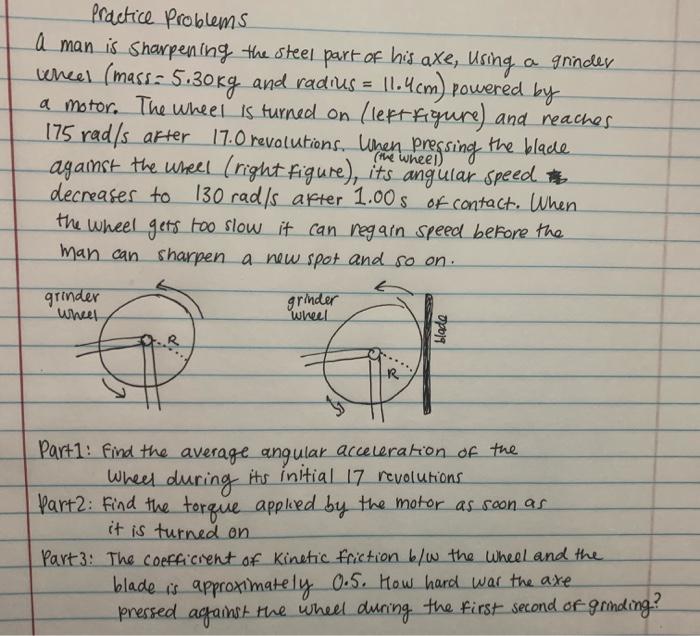 Practice Problems
A man is sharpening the steel part of his axe, using a grinder
wheel (mass= 5.30kg and radius = 11.4cm) powered by
a motor. The wheel is turned on (left figure) and reaches
175 rad/s after 17.0 revolutions. When pressing the blade
(the wheel)
against the wheel (right figure), its angular speed
decreases to 130 rad/s after 1.00s of contact. When
the wheel gets too slow it can regain speed before the
man can sharpen a new spot and so on.
grinder
wheel
R
grinder
wheel
R
blade
Part1: Find the average angular acceleration of the
wheel during its initial 17 revolutions
Part2: Find the torque applied by the motor as soon as
it is turned on
Part3: The coefficient of kinetic friction b/w the wheel and the
blade is approximately 0.5. How hard was the axe
pressed against the wheel during the first second of grinding?